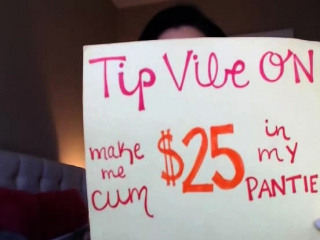 Tip Vibe ON
make me cum
$25
in my PANTIE